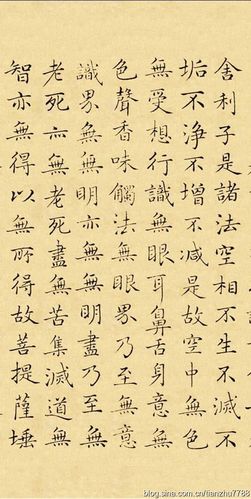 舍利子是諸法空相不生不滅不
垢不淨不增不減是故空中無色
無受想行識無眼耳鼻舌身意無
色聲香味觸法無眼界乃至無意
識界無無明亦無無明盡乃至無
老死亦無老死盡無苦集滅道無
智亦無得以無所得故菩提薩埵
blog.sina.com.cn/tianzhu7788